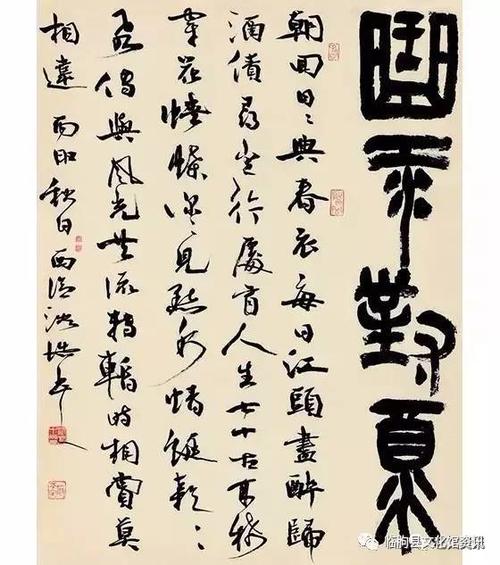 對
朝回日〻典春衣每日江頭盡醉歸
酒債尋常行處有人生七十古來稀
穿花蛺蝶深〻見點水蜻蜓款〻
飛傳語風光共流轉暫時相賞莫
相違 丙申秋日西泠
临朐县文化馆资讯